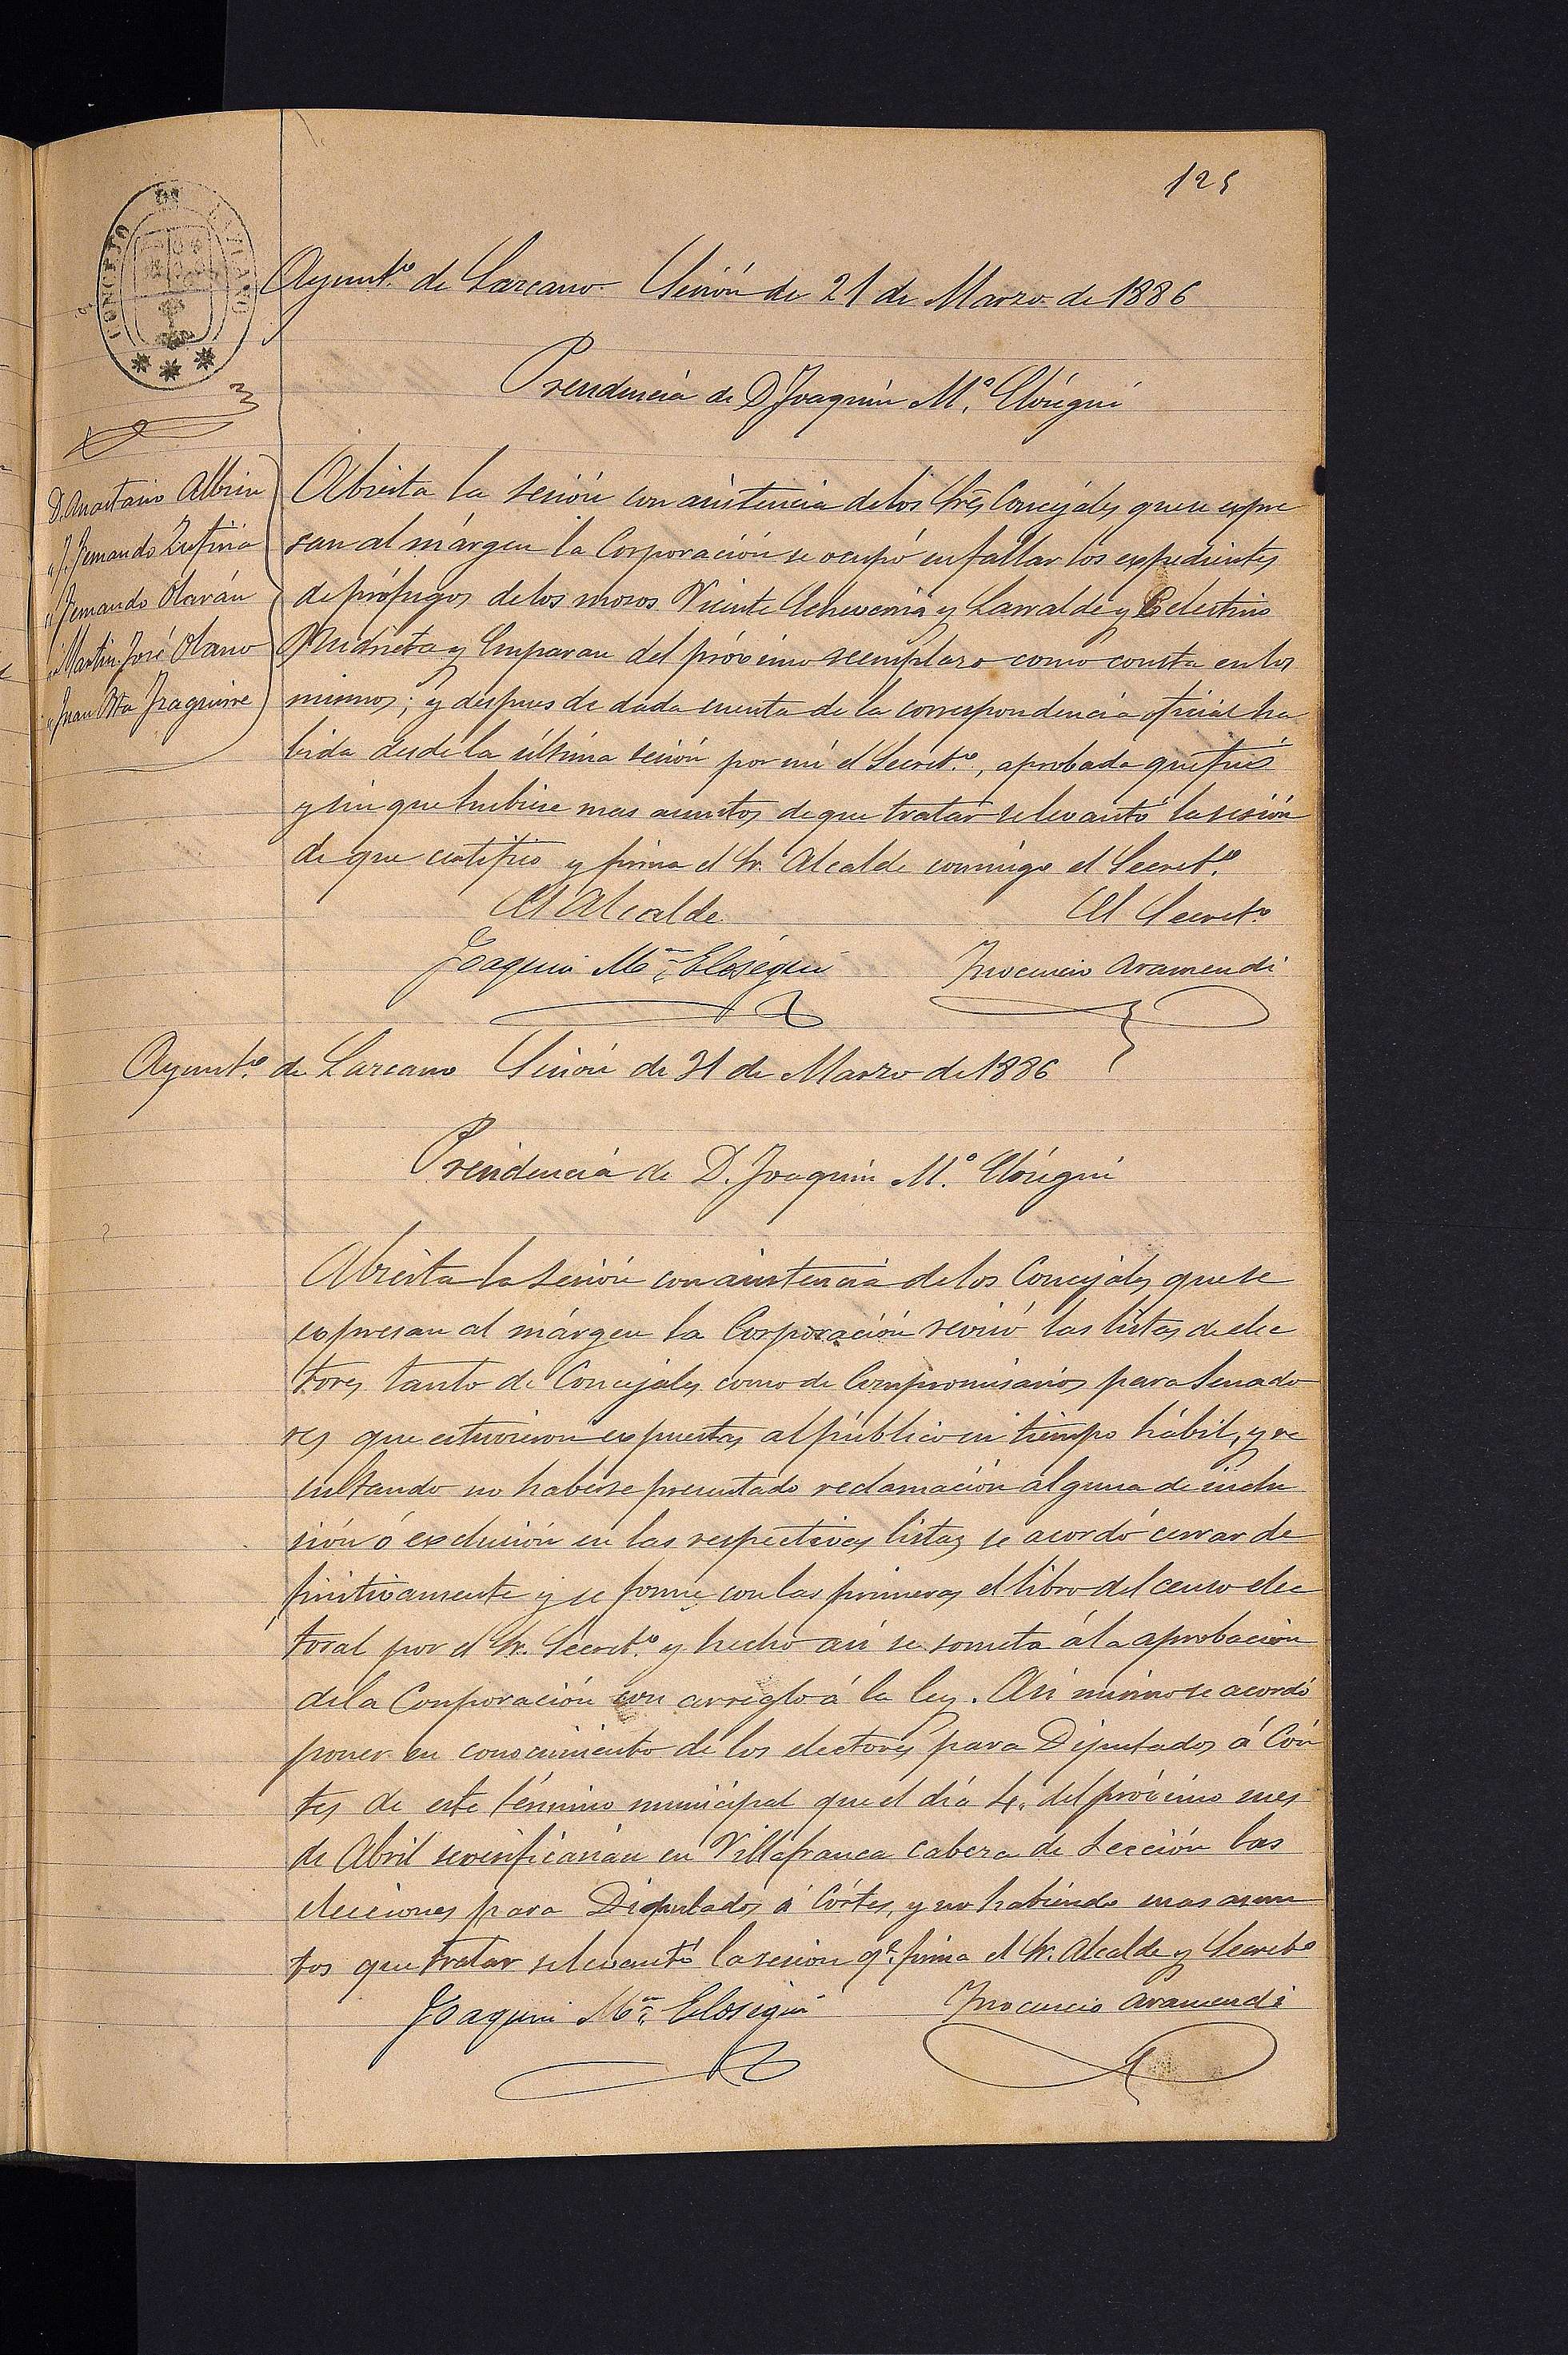 125
CONCEJO DE LAZCANO
Ayunt.º de Lazcano Sesión de 21 de Marzo de 1886
Presidencia de D Joaquin M.ª Elósegui
D. Anastasio Albisu
" J. Fernando Zufiria
" Fernando Olarán
" Martin José Olano
" Juan Bta Yraguirre
Abierta la sesión con asistencia de los Srēs Concejales que se expre
san al márgen la Corporación se ocupó en fallar los expedientes
de prófugos de los mozos Vicente Echeverria y Larralde y Celestino
Mudrieta y Emparan del próximo reemplazo como consta en los
mismos; y despues de dada cuenta de la correspondencia oficial ha
bida desde la última sesión por mi el Secret.º, aprobada que fué
y sin que hubiese mas asuntos de que tratar se levantó la sesión
de que certifico y firma el Sr. Alcalde conmigo el Secret.º
El Alcalde El Secret.º
Joaquin M.ª Elósegui Ynocencio Aramendi
Ayunt.º de Lazcano Sesión de 31 de Marzo de 1886
Presidencia de D. Joaquin M.ª Elósegui
Abierta la sesión con asistencia de los Concejales que se
expresan al márgen la Corporación revisó las listas de elec
tores tanto de Concejales como de Compromisarios para Senado
res que estuvieron expuestas al público en tiempo hábil, y re
sultando no haberse presentado reclamación alguna de inclu
sión ó exclusión en las respectivas listas se acordó cerrar de
finitivamente y se forme con las primeras el libro del censo elec
toral por el Sr. Secret.º y hecho asi se someta á la aprobación
de la Corporación con arreglo á la ley. Asi mismo se acordó
poner en conocimiento de los electores para Diputados á Cór
tes de este término municipal que el día 4, del próximo mes
de Abril se verificarian en Villafranca cabeza de Sección las
elecciones para Diputados á Córtes, y no habiendo mas asun
tos que tratar se levantó la sesion q.e firma el Sr. Alcalde y Secret.º
Joaquin M.ª Elósegui Ynocencio Aramendi